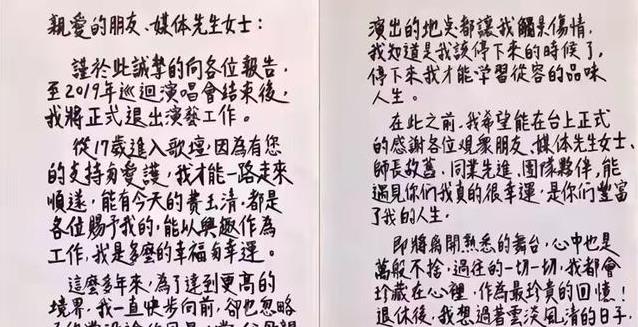 親愛的朋友、媒体先生女士：
謹於此誠摯的向各位報告，
至2019年巡迴演唱會結束後，
我將正式退出演藝工作。
從17歲進入歌壇，因為有您
的支持与愛護，我才能一路走來
順遂，能有今天的費玉清，都是
各位賜予我的，能以興趣作為
工作，我是多麼的幸福与幸運。
這麼多年來，為了達到更高的
境界，我一直快步向前，卻也忽略
演出的地点都讓我觸景傷情，
我知道是我該停下來的時候了，
停下來我才能学習從容的品味
人生。
在此之前，我希望能在台上正式
的感謝各位观衆朋友、媒体先生女士、
師長故舊、同業先進、团隊夥伴，能
遇見你們我真的很幸運，是你們豐富
了我的人生。
即將离開熟悉的舞台，心中也是
萬般不捨，過往的一切一切，我都會
珍藏在心裡，作為最珍貴的回憶！
退休後，我想過著雲淡風清的日子，